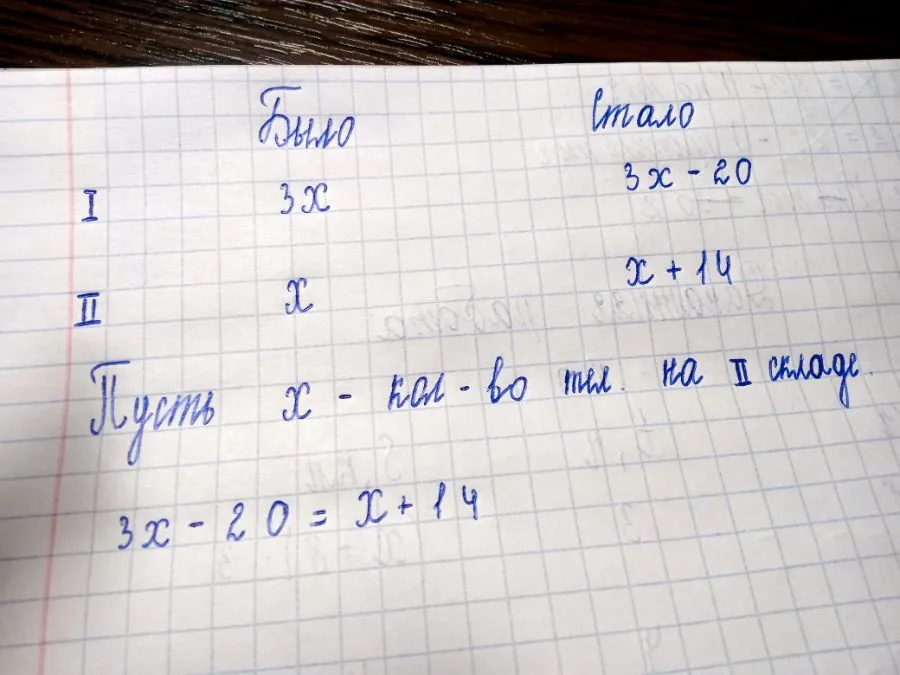 Было Стало
I 3x 3x - 20
II x x + 14
Пусть x - кол-во тел. на II складе.
3x - 20 = x + 14